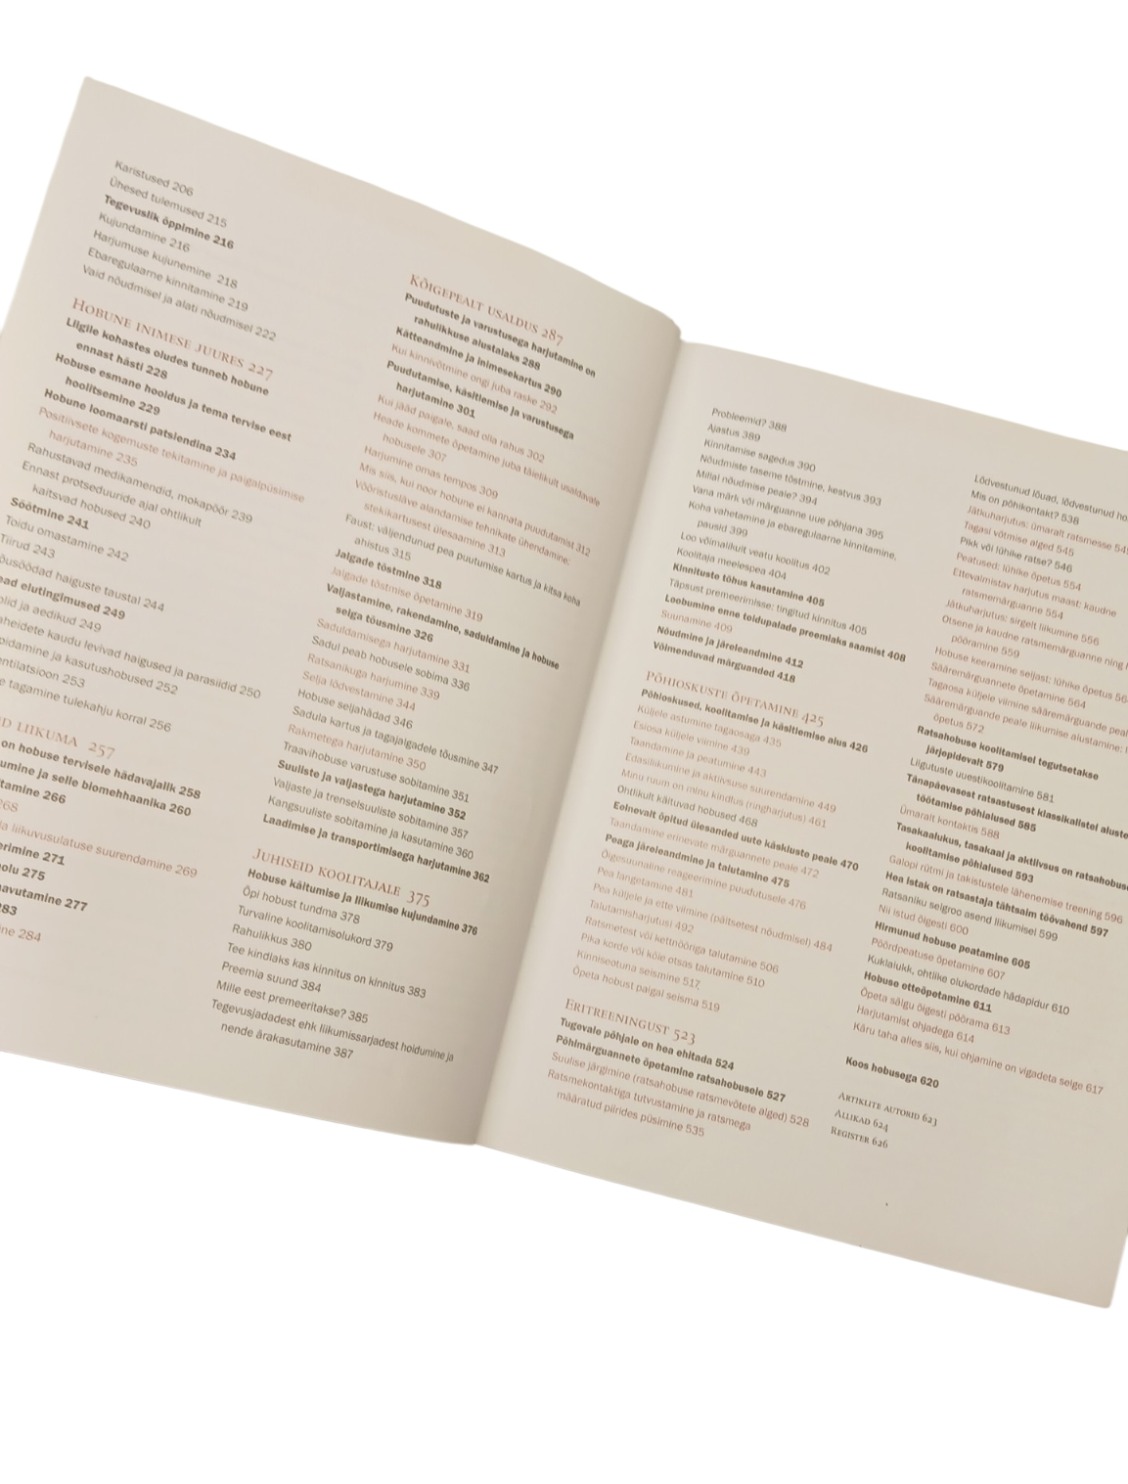 Karistused 206
Ühesed tulemused 215
Tegevuslik õppimine 216
Kujundamine 216
Harjumuse kujunemine 218
Ebaregulaarne kinnitamine 219
Vaid nõudmisel ja alati nõudmisel 222
Hobune inimese juures 227
Liigile kohastes oludes tunneb hobune
ennast hästi 228
Hobuse esmane hooldus ja tema tervise eest
hoolitsemine 229
Hobune loomaarsti patsiendina 234
Positiivsete kogemuste tekitamine ja paigalpüsimise
harjutamine 235
Rahustavad medikamendid, mokapöör 239
Ennast protseduuride ajal ohtlikult
kaitsvad hobused 240
Söötmine 241
Toidu omastamine 242
Tiirud 243
õusöödad haiguste taustal 244
ead elutingimused 249
olid ja aedikud 249
aheidete kaudu levivad haigused ja parasiidid 250
oidamine ja kasutushobused 252
entilatsioon 253
e tagamine tulekahju korral 256
d liikuma 257
on hobuse tervisele hädavajalik 258
umine ja selle biomehhaanika 260
tamine 266
268
ja liikuvusulatuse suurendamine 269
erimine 271
olu 275
avutamine 277
283
ine 284
Kõigepealt usaldus 287
Puudutuste ja varustusega harjutamine on
rahulikkuse alustalaks 288
Kätteandmine ja inimesekartus 290
Kui kinnivõtmine ongi juba raske 292
Puudutamise, käsitlemise ja varustusega
harjutamine 301
Kui jääd paigale, saad olla rahus 302
Heade kommete õpetamine juba täielikult usaldavale
hobusele 307
Harjumine omas tempos 309
Mis siis, kui noor hobune ei kannata puudutamist 312
Võõristusläve alandamise tehnikate ühendamine:
stekikartusest ülesaamine 313
Faust: väljendunud pea puutumise kartus ja kitsa koha
ahistus 315
Jalgade tõstmine 318
Jalgade tõstmise õpetamine 319
Valjastamine, rakendamine, saduldamine ja hobuse
selga tõusmine 326
Saduldamisega harjutamine 331
Sadul peab hobusele sobima 336
Ratsanikuga harjumine 339
Selja lõdvestamine 344
Hobuse seljahädad 346
Sadula kartus ja tagajalgadele tõusmine 347
Rakmetega harjutamine 350
Traavihobuse varustuse sobitamine 351
Suuliste ja valjastega harjutamine 352
Valjaste ja trenselsuuliste sobitamine 357
Kangsuuliste sobitamine ja kasutamine 360
Laadimise ja transportimisega harjutamine 362
Juhiseid koolitajale 375
Hobuse käitumise ja liikumise kujundamine 376
Õpi hobust tundma 378
Turvaline koolitamisolukord 379
Rahulikkus 380
Tee kindlaks kas kinnitus on kinnitus 383
Preemia suund 384
Mille eest premeeritakse? 385
Tegevusjadadest ehk liikumissarjadest hoidumine ja
nende ärakasutamine 387
Probleemid? 388
Ajastus 389
Kinnitamise sagedus 390
Nõudmiste taseme tõstmine, kestvus 393
Millal nõudmise peale? 394
Vana märk või märguanne uue põhjana 395
Koha vahetamine ja ebaregulaarne kinnitamine,
pausid 399
Loo võimalikult veatu koolitus 402
Koolitaja meelespea 404
Kinnituste tõhus kasutamine 405
Täpsust premeerimisse: tingitud kinnitus 405
Loobumine enne toidupalade preemiaks saamist 408
Suunamine 409
Nõudmine ja järeleandmine 412
Võimenduvad märguanded 418
Põhioskuste õpetamine 425
Põhioskused, koolitamise ja käsitlemise alus 426
Küljele astumine tagaosaga 435
Esiosa küljele viimine 439
Taandamine ja peatumine 443
Edasiliikumine ja aktiivsuse suurendamine 449
Minu ruum on minu kindlus (ringharjutus) 461
Ohtlikult käituvad hobused 468
Eelnevalt õpitud ülesanded uute käskluste peale 470
Taandamine erinevate märguannete peale 472
Peaga järeleandmine ja talutamine 475
Õigesuunaline reageerimine puudutusele 476
Pea langetamine 481
Pea küljele ja ette viimine (päitsetest nõudmisel) 484
Talutamisharjutusi 492
Ratsmetest või kettnööriga talutamine 506
Pika korde või köie otsas talutamine 510
Kinniseotuna seismine 517
Õpeta hobust paigal seisma 519
Eritreeningust 523
Tugevale põhjale on hea ehitada 524
Põhimärguannete õpetamine ratsahobusele 527
Suulise järgimine (ratsahobuse ratsmevõtete alged) 528
Ratsmekontaktiga tutvustamine ja ratsmega
määratud piirides püsimine 535
Lõdvestunud lõuad, lõdvestunud
Mis on põhikontakt? 538
Jätkuharjutus: ümaralt ratsmesse
Tagasi võtmise alged 545
Pikk või lühike ratse? 546
Peatused: lühike õpetus 554
Ettevalmistav harjutus maast: kaudne
ratsmemärguanne 554
Jätkuharjutus: sirgelt liikumine 556
Otsene ja kaudne ratsmemärguanne ning
pööramine 559
Hobuse keeramine seljast: lühike õpetus
Sääremärguannete õpetamine 564
Tagaosa küljele viimine sääremärguande
Sääremärguande peale liikumise alustamine:
õpetus 572
Ratsahobuse koolitamisel tegutsetakse
järjepidevalt 579
Liigutuste uuestikoolitamine 581
Tänapäevasest ratsastusest klassikalistel
töötamise põhialused 585
Ümaralt kontaktis 588
Tasakaalukus, tasakaal ja aktiivsus on
koolitamise põhialused 593
Galopi rütmi ja takistustele lähenemise treening 596
Hea istak on ratsastaja tähtsaim töövahend 597
Ratsaniku selgroo asend liikumisel 599
Nii istud õigesti 600
Hirmunud hobuse peatamine 605
Pöördpeatuse õpetamine 607
Kuklalukk, ohtlike olukordade hädapidur 610
Hobuse etteõpetamine 611
Õpeta sälgu õigesti pöörama 613
Harjutamist ohjadega 614
Käru taha alles siis, kui ohjamine on vigadeta selge 617
Koos hobusega 620
Artiklite autorid 623
Allikad 624
Register 626